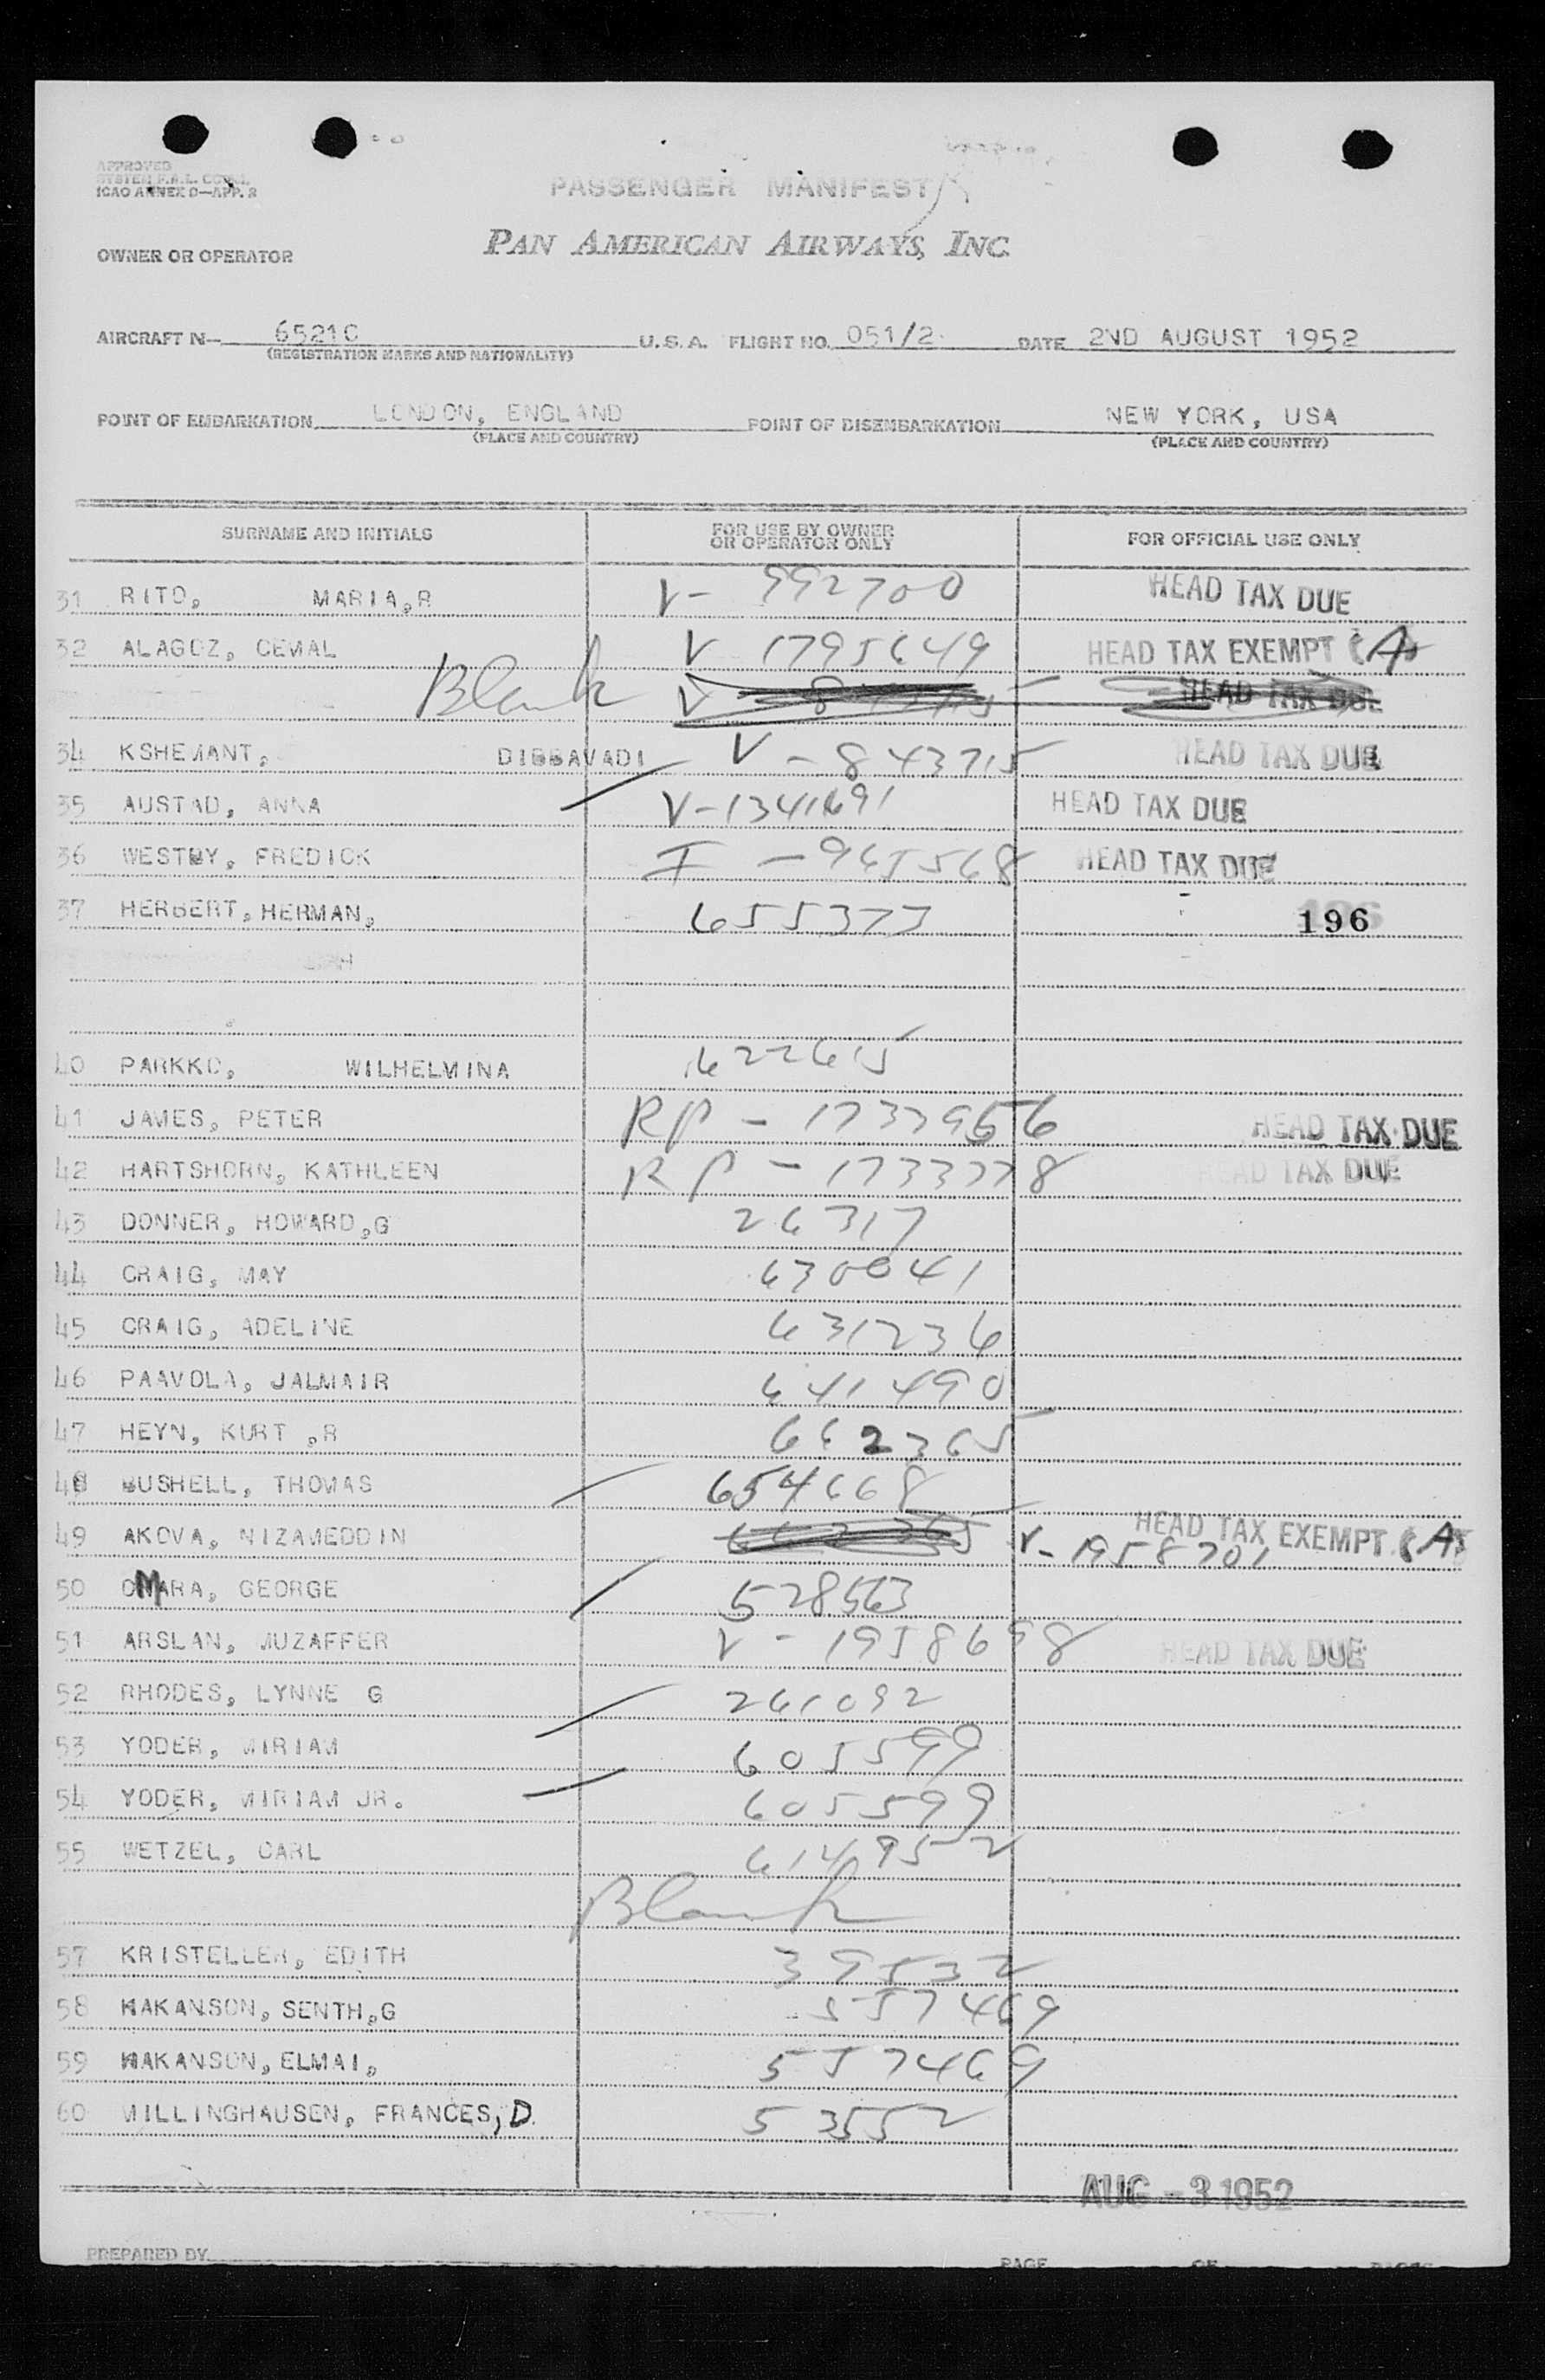 APPROVED
ICAO ANNEX D—APP. 2
PASSENGER MANIFEST
OWNER OR OPERATOR PAN AMERICAN AIRWAYS, INC.
AIRCRAFT N— 6521C U.S.A. FLIGHT NO. 051/2 DATE 2ND AUGUST 1952
(REGISTRATION MARKS AND NATIONALITY)
POINT OF EMBARKATION LONDON, ENGLAND POINT OF DISEMBARKATION NEW YORK, USA
(PLACE AND COUNTRY) (PLACE AND COUNTRY)
SURNAME AND INITIALS FOR USE BY OWNER OR OPERATOR ONLY FOR OFFICIAL USE ONLY
31 RITO, MARIA,R V- 992700 HEAD TAX DUE
32 ALAGOZ, CEMAL V 1795649 HEAD TAX EXEMPT (A)
Blank V HEAD TAX DUE
34 KSHEMANT, DIBBAVADI V - 843715 HEAD TAX DUE
35 AUSTAD, ANNA V-1341691 HEAD TAX DUE
36 WESTBY, FREDICK I - 965568 HEAD TAX DUE
37 HERBERT, HERMAN, 655373 196
40 PARKKO, WILHELMINA 622615
41 JAMES, PETER RP - 1737956 HEAD TAX DUE
42 HARTSHORN, KATHLEEN RP - 1733778 HEAD TAX DUE
43 DONNER, HOWARD,G 26317
44 CRAIG, MAY 630041
45 CRAIG, ADELINE 631236
46 PAAVOLA, JALMAIR 641490
47 HEYN, KURT ,R 662365
48 BUSHELL, THOMAS 654668
49 AKOVA, NIZAMEDDIN 662365 V- 1958701 HEAD TAX EXEMPT (A)
50 OMARA, GEORGE 528563
51 ARSLAN, MUZAFFER V - 1958698 HEAD TAX DUE
52 RHODES, LYNNE G 261092
53 YODER, MIRIAM 605599
54 YODER, MIRIAM JR. 605599
55 WETZEL, CARL 614952
Blank
57 KRISTELLER, EDITH 39532
58 HAKANSON, SENTH,G 557469
59 HAKANSON, ELMAI, 557469
60 MILLINGHAUSEN, FRANCES, D. 53552
AUG -3 1952
PREPARED BY PAGE OF PAGES